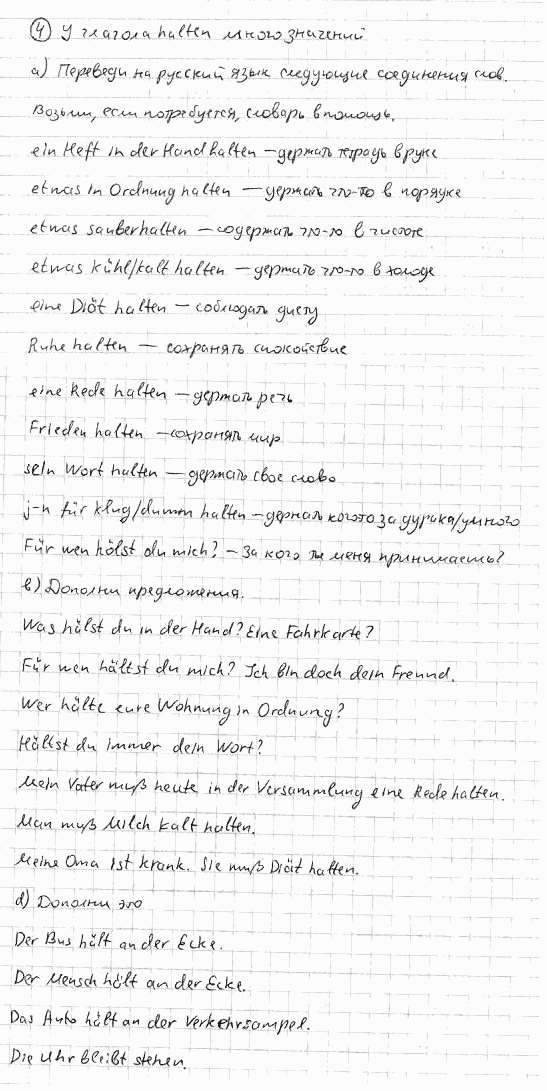 ④ У глагола halten много значений
a) Переведи на русский язык следующие соединения слов.
Возьми, если потребуется, словарь в помощь.
ein Heft in der Hand halten – держать тетрадь в руке
etwas in Ordnung halten — держать что-то в порядке
etwas sauberhalten – содержать что-то в чистоте
etwas kühl/kalt halten – держать что-то в холоде
eine Diät halten – соблюдать диету
Ruhe halten — сохранять спокойствие
eine Rede halten – держать речь
Frieden halten – сохранять мир
sein Wort halten – держать свое слово
j-n für klug/dumm halten – держать кого-то за дурака/умного
Für wen hälst du mich? – За кого ты меня принимаешь?
b) Дополни предложения.
Was hälst du in der Hand? Eine Fahrkarte?
Für wen hältst du mich? Ich bin doch dein Freund.
Wer hälte eure Wohnung in Ordnung?
Hältst du immer dein Wort?
Mein Vater muß heute in der Versammlung eine Rede halten.
Man muß Milch kalt halten.
Meine Oma ist krank. Sie muß Diät halten.
d) Дополни это
Der Bus hält an der Ecke.
Der Mensch hält an der Ecke.
Das Auto hält an der Verkehrsampel.
Die Uhr bleibt stehen.